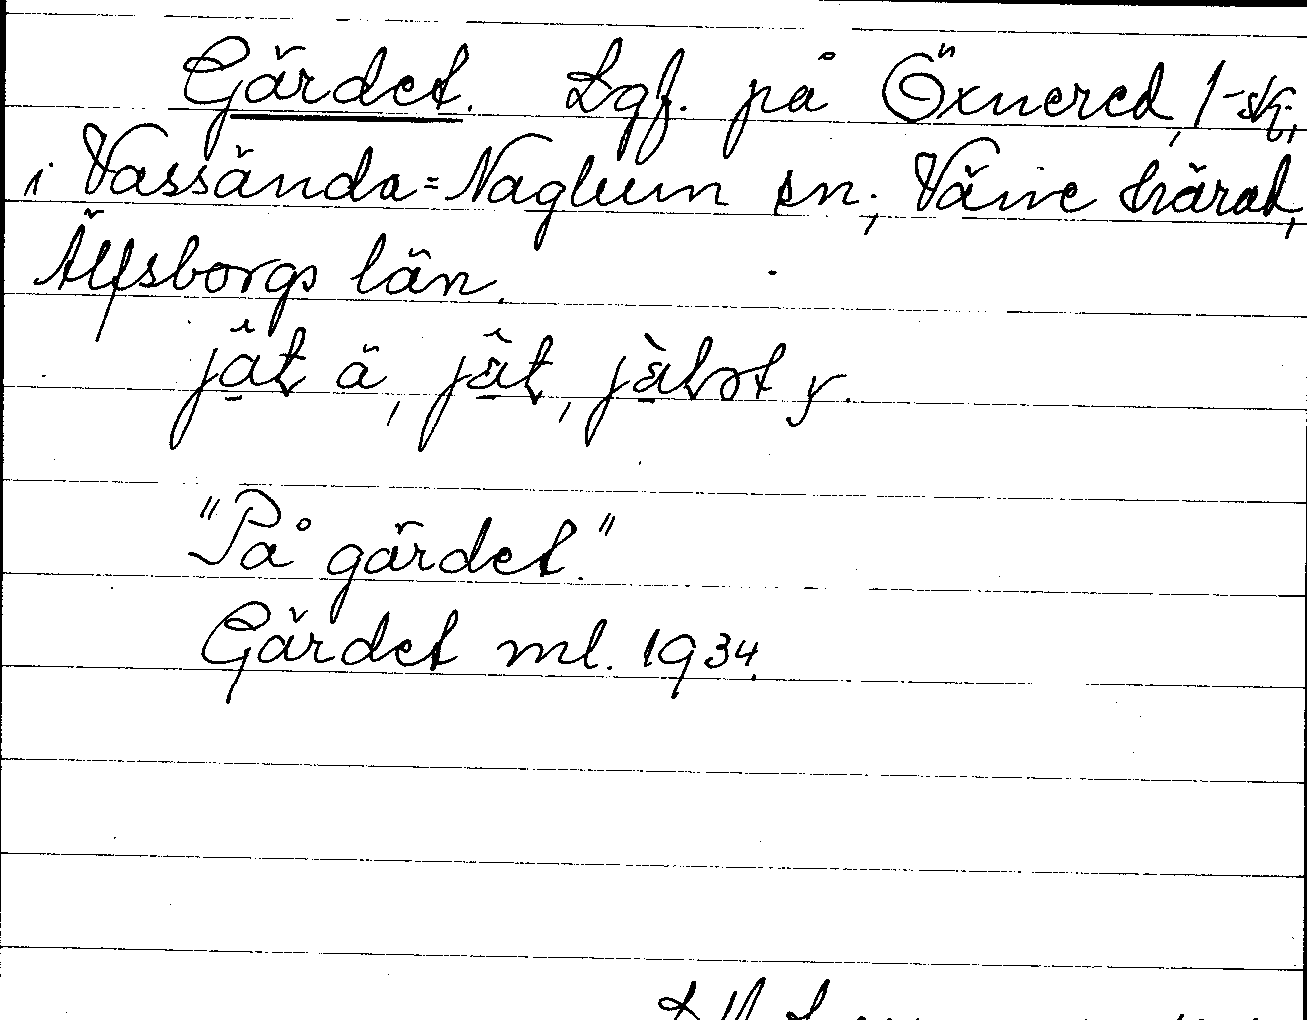 Gärdet. Lgf. på Öxnered, 1-sk,
i Vassända=Naglum sn, Väne härad,
Älfsborgs län.
"På gärdet."
Gärdet ml. 1934.